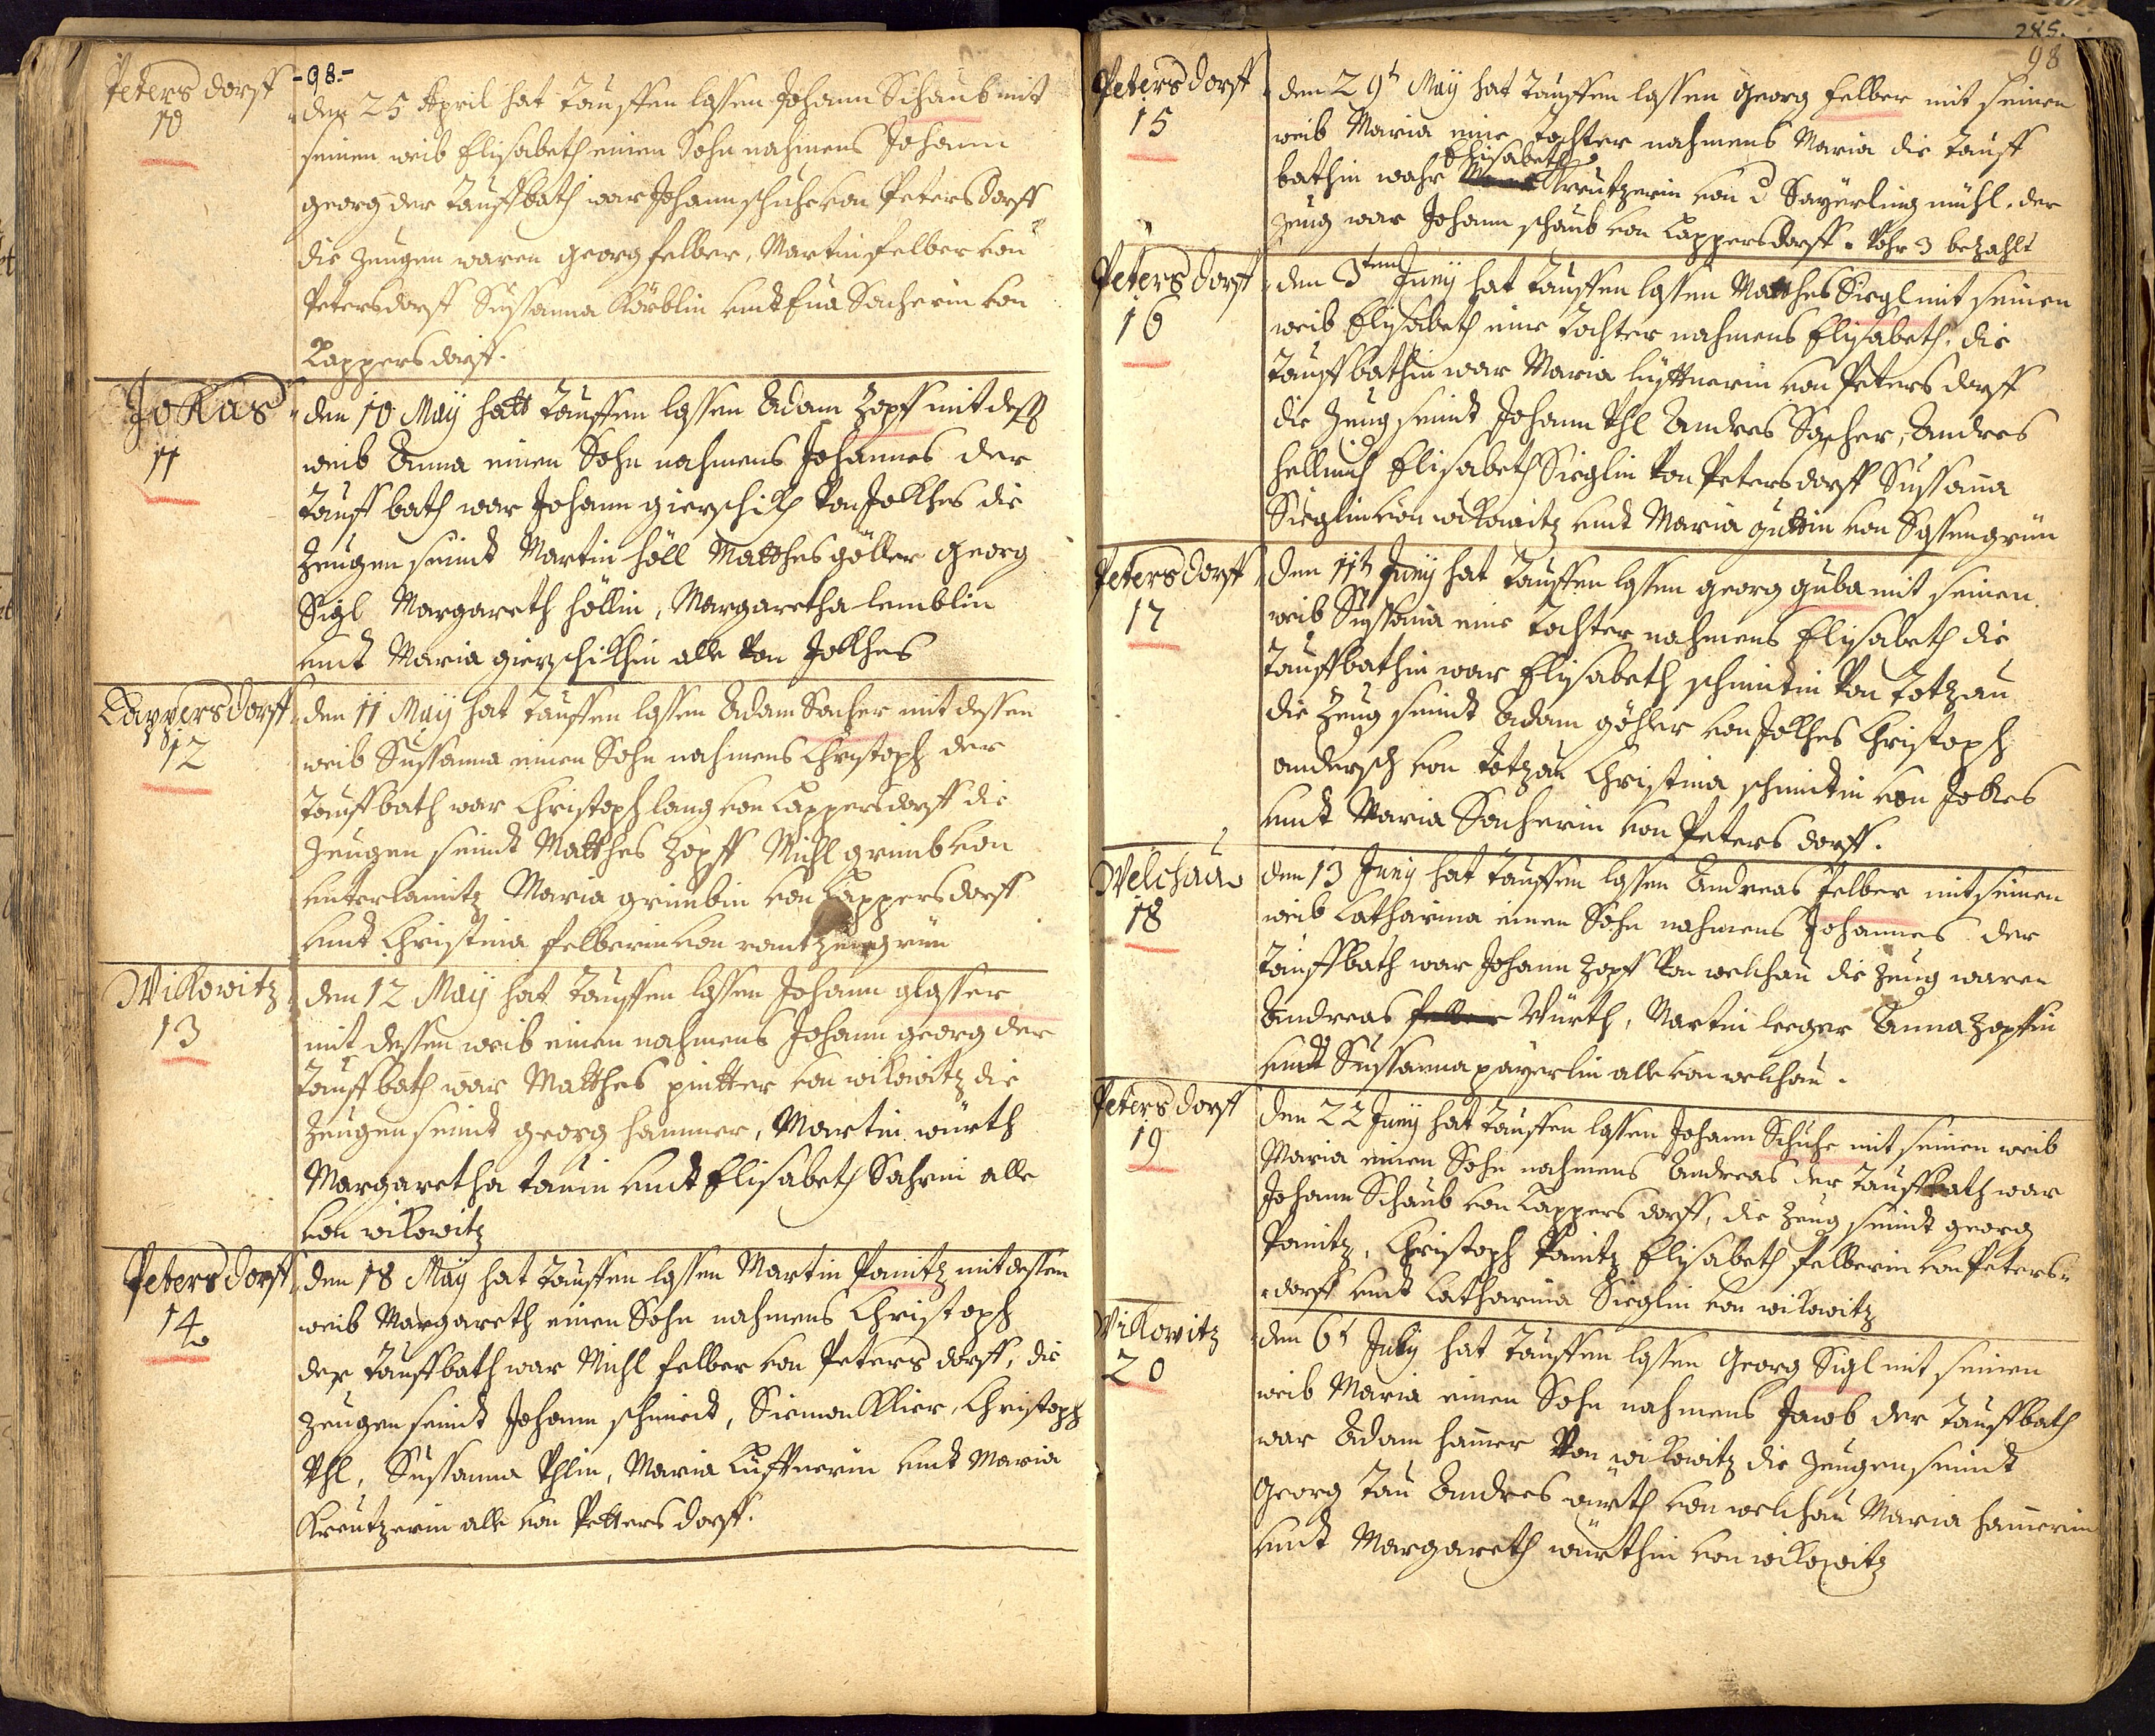 -98-
Peters dorff
10
den 25 April hat tauffen lassen Johann Schaub mit
seinen weib Elisabeth einen Sohn nahmens Johann
georg der tauffbath war Johann schuhe von Petersdorff
die zeugen waren georg felber, Martin felber von
Petersdorff Sussanna Körblin undt Eua Sacherin von
Lappersdorff.
Jokas
11
den 10 Maÿ hatt tauffen lassen Adam Zopff mit dess
weib Anna einen Sohn nahmens Johannes der
tauff bath war Johann gierschikh von Jokhes die
Zeugen seindt Martin höll Matthes göller Georg
Sigl Margareth höllin, Margaretha lemblin
undt Maria gierschikhin alle von Jokhes
Lappersdorff
12
den 11 Maÿ hat tauffen lassen Adam Sacher mit dessen
weib Sussanna einen Sohn nahmens Christoph der
tauffbath war Christoph lang von Lappersdorff die
Zeugen seindt Matthes Zopff Michl grimb von
unterlamitz Maria grimbin von Lappersdorff
undt Christina felberin von rantzengrün
Wikowitz
13
den 12 Maÿ hat tauffen lassen Johann glasser
mit dessen weib einen nahmens Johann georg der
tauffbath war Matthes pintter von wikowitz die
Zeugen seindt georg hammer, Martin würth
Margaretha tauin undt Elisabeth alle
von wikowitz
Petersdorff
14
den 18 Maÿ hat tauffen lassen Martin Panitz mit dessen
weib Margareth einen Sohn nahmens Christoph
der tauffbath war Michl felber von Peters dorff, die
zeugen seindt Johann schmiedt, Siemon Klier, Christoph
Vhl, Sussanna Vhlin, Maria Lüfftnerin undt Maria
Kreutzerin alle von Petters dorff.
285.
98
Petersdorff
15
den 29t Maÿ hat tauffen lassen Georg felber mit seinen
weib Maria eine tochter nahmens Maria die tauff
Elisabeth
bathin wahr Kreutzerin von d Saÿerling mühl. der
zeug war Johann schaub von Lappersdorff. 3 bezahlt
Petersdorff
16
den 3ten Junÿ hat tauffen lassen Matthes Siegl mit seinen
weib Elisabeth eine tochter nahmens Elisabeth. die
tauffbathin war Maria lüfftnerin von Petersdorff
die zeug seindt Johann Vhl Andres Sacher, Andres
hellmich Elisabeth Sieglin von Petersdorff Sussana
Sieglin von wikowitz undt Maria guttin von Sassengrün
Petersdorff
17
den 11th Junÿ hat tauffen lassen georg guba mit seinen
weib Sussana eine tochter nahmens Elisabeth die
tauffbathin war Elisabeth schmidtin von totzau
die zeug seindt Adam göhler von Jokhes Christoph
andersch von totzau Christina schmidtin von Jokes
undt Maria Sacherin von Peters dorff.
Welchau
18
den 13 Junÿ hat tauffen lassen Andreas felber mit seinen
weib Catharina einen Sohn nahmens Johannes der
tauffbath war Johann Zopff von welchau die zeug waren
Andreas felber Würth, Martin leeger Anna Zopffin
undt Sussanna paÿerlin alle von welchau.
Petersdorff
19
den 22 Junÿ hat tauffen lassen Johann Schuhe mit seinen weib
Maria einen Sohn nahmens Andreas der tauffbath war
Johann Schaub von Lappersdorff, die zeug seindt georg
Panitz, Christoph Panitz Elisabeth felberin von Peters=
=dorff undt Catharina Sieglin von wikowitz
Wikowitz
20
den 6t Julÿ hat tauffen lassen Georg Sigl mit seinen
weib Maria einen Sohn nahmens Jacob der tauffbath
war Adam hamer von wikowitz die zeugen seindt
Georg tau Andres würth von welchau Maria hamerin
undt Margareth würthin von wikowitz